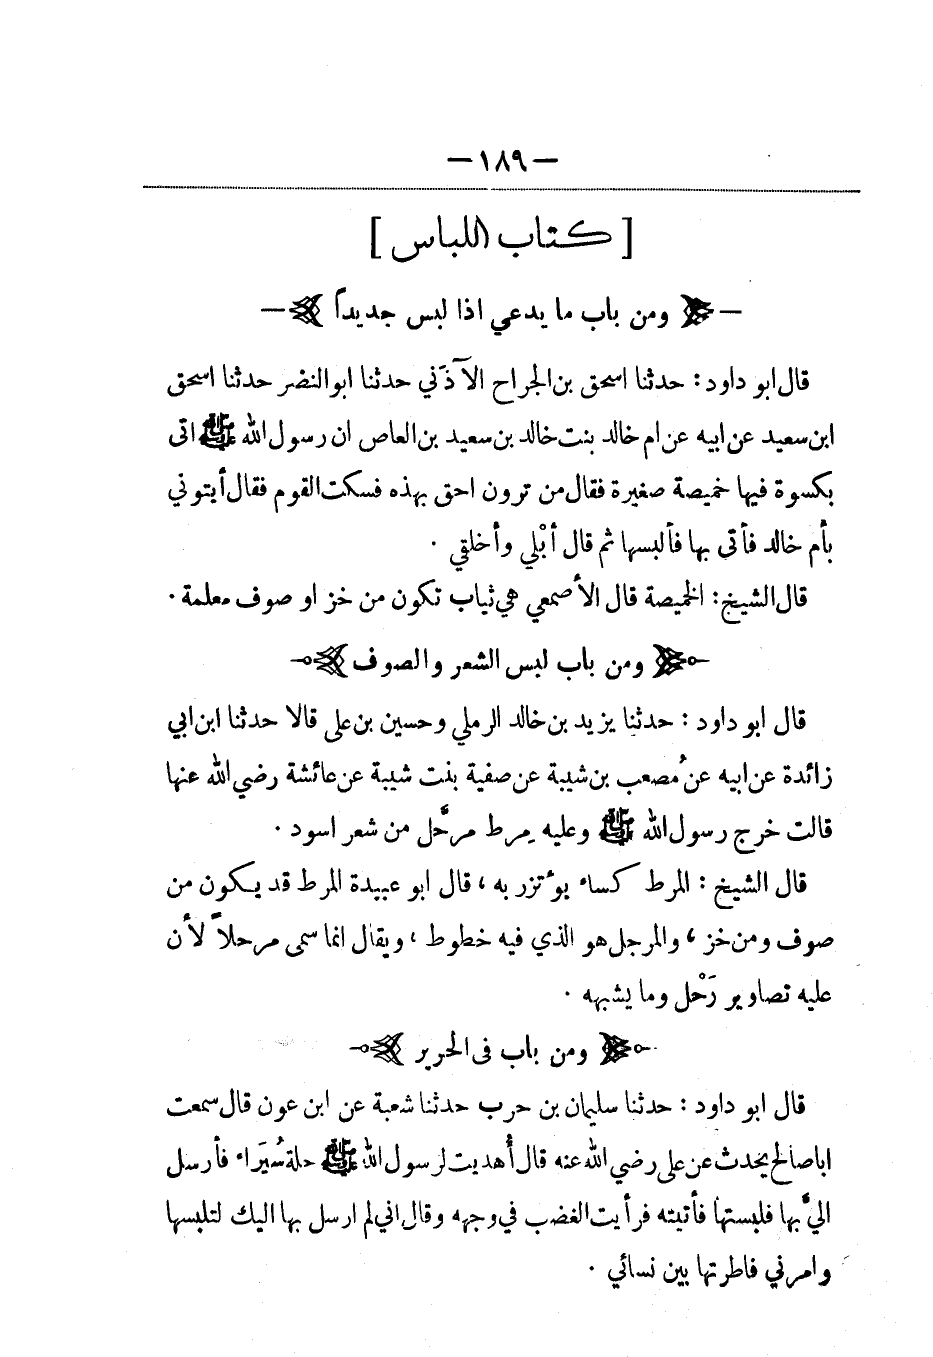 — ١٨٩ —
[ كتاب اللباس ]
— ومن باب ما يدعي اذا لبس جديداً —
قال ابو داود : حدثنا اسحق بن الجراح الآذَني حدثنا ابو النضر حدثنا اسحق
ابن سعيد عن ابيه عن ام خالد بنت خالد بن سعيد بن العاص ان رسول الله ﷺ اتى
بكسوة فيها خميصة صغيرة فقال من ترون احق بهذه فسكت القوم فقال أيتوني
بأم خالد فأتى بها فألبسها ثم قال أبْلي وأخلقي ٠
قال الشيخ : الخميصة قال الأصمعي هي ثياب تكون من خز او صوف معلمة ٠
ومن باب لبس الشعر والصوف
قال ابو داود : حدثنا يزيد بن خالد الرملي وحسين بن على قالا حدثنا ابن ابي
زائدة عن ابيه عن مُصعب بن شيبة عن صفية بنت شيبة عن عائشة رضي الله عنها
قالت خرج رسول الله ﷺ وعليه مرط مرحَّل من شعر اسود ٠
قال الشيخ : المرط كساء يوءتزر به ، قال ابو عبيدة المرط قد يكون من
صوف ومن خز ، والمرجل هو الذي فيه خطوط ، ويقال انما سمى مرحلاً لأن
عليه تصاوير رَحْل وما يشبهه ٠
ومن باب فى الحرير
قال ابو داود : حدثنا سليمان بن حرب حدثنا شعبة عن ابن عون قال سمعت
ابا صالح يحدث عن على رضي الله عنه قال أُهديت لرسول الله ﷺ حلة سُيَراء فأرسل
اليَّ بها فلبستها فأتيته فرأيت الغضب في وجهه وقال اني لم ارسل بها اليك لتلبسها
وامرني فاطرتها بين نسائي ٠